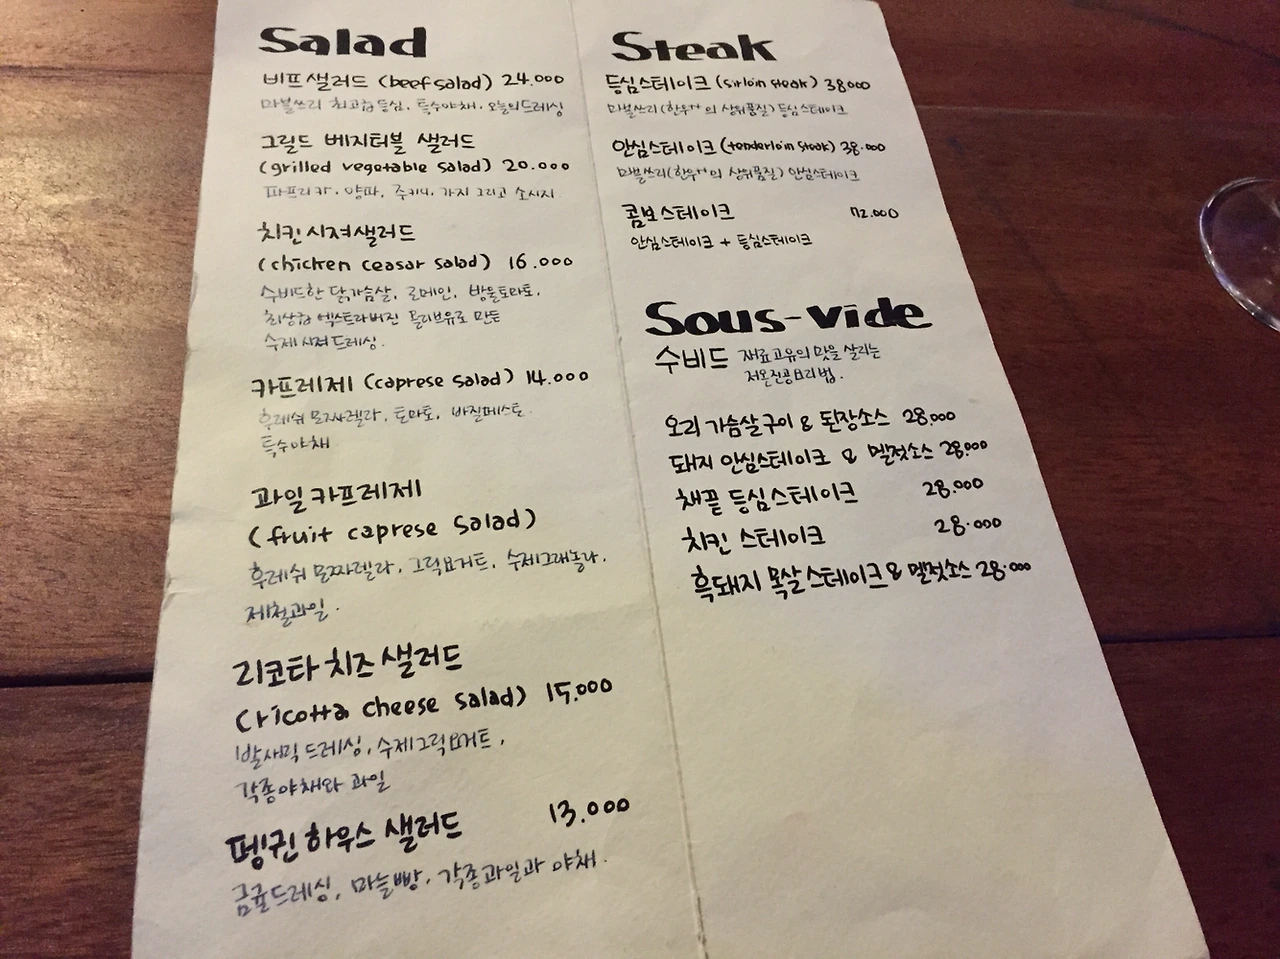 Salad
비프샐러드 (beef salad) 24.000
마블쓰리 최고급등심, 특수야채, 오늘의드레싱
그릴드 베지터블 샐러드
(grilled vegetable salad) 20.000
파프리카, 양파, 주키니, 가지 그리고 소시지
치킨시져샐러드
(chicken ceasar salad) 16.000
수비드한 닭가슴살, 로메인, 방울토마토,
최상급 엑스트라버진 올리브유로 만든
수제시져드레싱.
카프레제 (caprese salad) 14.000
후레쉬 모짜렐라, 토마토, 바질페스토
특수야채
과일카프레제
(fruit caprese salad)
후레쉬 모짜렐라, 그릭요거트, 수제그래놀라,
제철과일.
리코타 치즈 샐러드
(ricotta cheese salad) 15.000
발사믹 드레싱, 수제그릭요거트,
각종야채와 과일
펭귄하우스 샐러드 13.000
금귤드레싱, 마늘빵, 각종과일과 야채.
Steak
등심스테이크 (sirloin steak) 38000
마블쓰리(한우++의 상위품질) 등심스테이크
안심스테이크 (tenderloin steak) 38.000
마블쓰리(한우++의 상위품질) 안심스테이크
콤보스테이크 72.000
안심스테이크 + 등심스테이크
Sous-vide
수비드 재료고유의 맛을 살리는
저온진공요리법.
오리 가슴살구이 & 된장소스 28.000
돼지 안심스테이크 & 멜젓소스 28.000
채끝 등심스테이크 28.000
치킨 스테이크 28.000
흑돼지 목살스테이크 & 멜젓소스 28.000